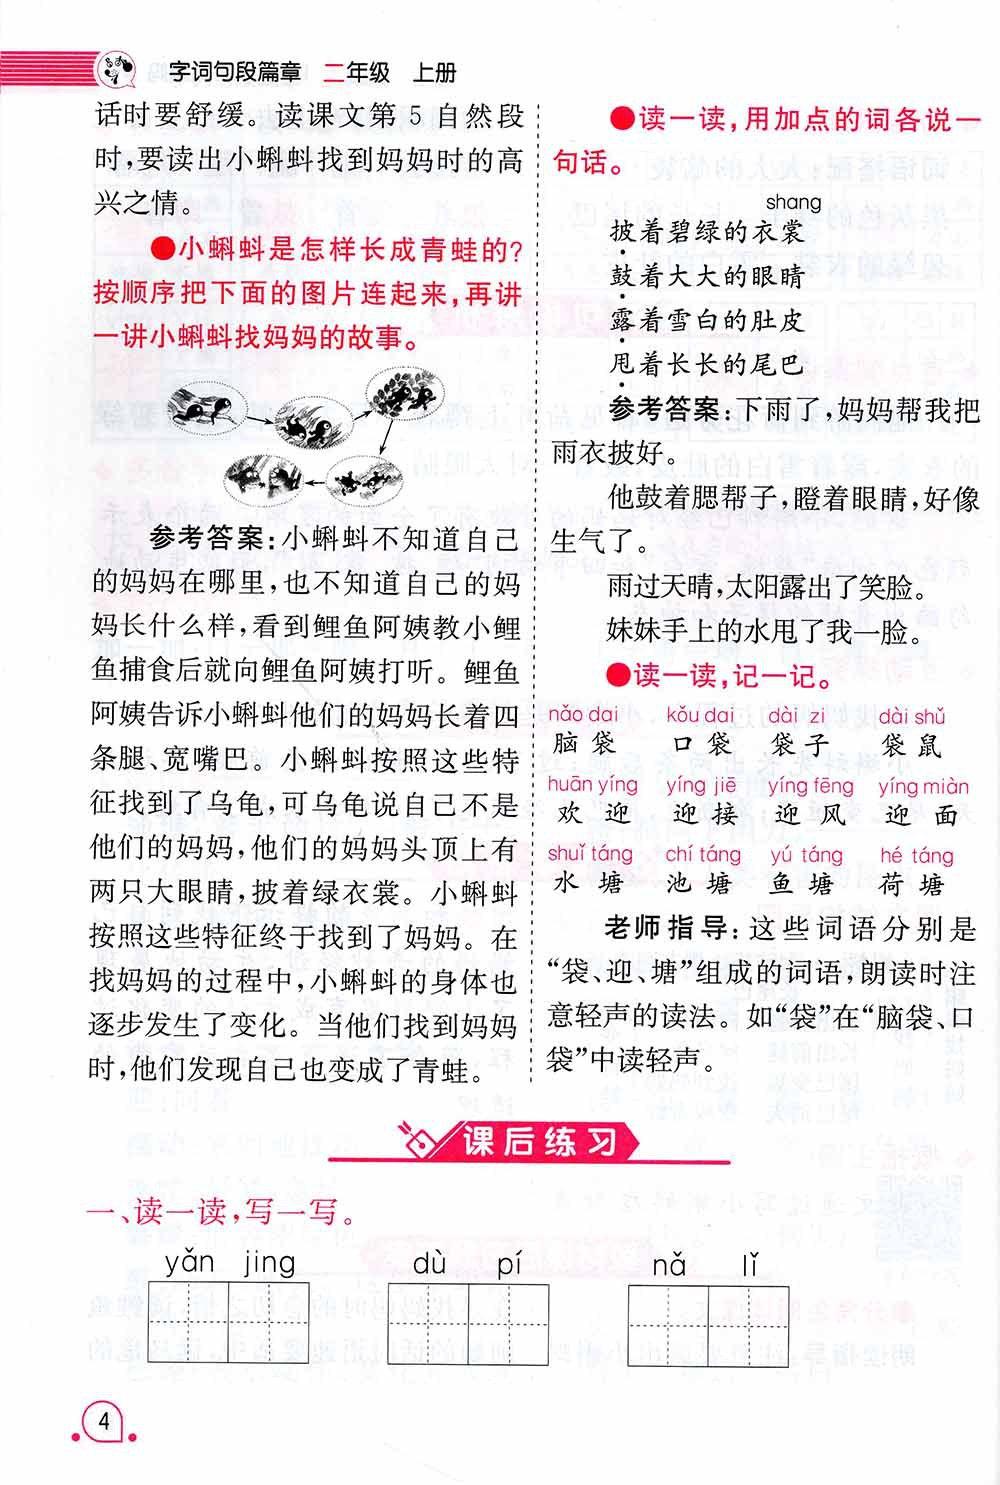 字词句段篇章 二年级 上册
话时要舒缓。读课文第5自然段
时,要读出小蝌蚪找到妈妈时的高
兴之情。
●小蝌蚪是怎样长成青蛙的?
按顺序把下面的图片连起来,再讲
一讲小蝌蚪找妈妈的故事。
参考答案:小蝌蚪不知道自己
的妈妈在哪里,也不知道自己的妈
妈长什么样,看到鲤鱼阿姨教小鲤
鱼捕食后就向鲤鱼阿姨打听。鲤鱼
阿姨告诉小蝌蚪他们的妈妈长着四
条腿、宽嘴巴。小蝌蚪按照这些特
征找到了乌龟,可乌龟说自己不是
他们的妈妈,他们的妈妈头顶上有
两只大眼睛,披着绿衣裳。小蝌蚪
按照这些特征终于找到了妈妈。在
找妈妈的过程中,小蝌蚪的身体也
逐步发生了变化。当他们找到妈妈
时,他们发现自己也变成了青蛙。
●读一读,用加点的词各说一
句话。
shang
披着碧绿的衣裳
鼓着大大的眼睛
露着雪白的肚皮
甩着长长的尾巴
参考答案:下雨了,妈妈帮我把
雨衣披好。
他鼓着腮帮子,瞪着眼睛,好像
生气了。
雨过天晴,太阳露出了笑脸。
妹妹手上的水甩了我一脸。
●读一读,记一记。
nǎo dai kǒu dai dài zi dài shǔ
脑袋 口袋 袋子 袋鼠
huān yíng yíng jiē yíng fēng yíng miàn
欢迎 迎接 迎风 迎面
shuǐ táng chí táng yú táng hé táng
水塘 池塘 鱼塘 荷塘
老师指导:这些词语分别是
“袋、迎、塘”组成的词语,朗读时注
意轻声的读法。如“袋”在“脑袋、口
袋”中读轻声。
课后练习
一、读一读,写一写。
yǎn jing dù pí nǎ lǐ
4